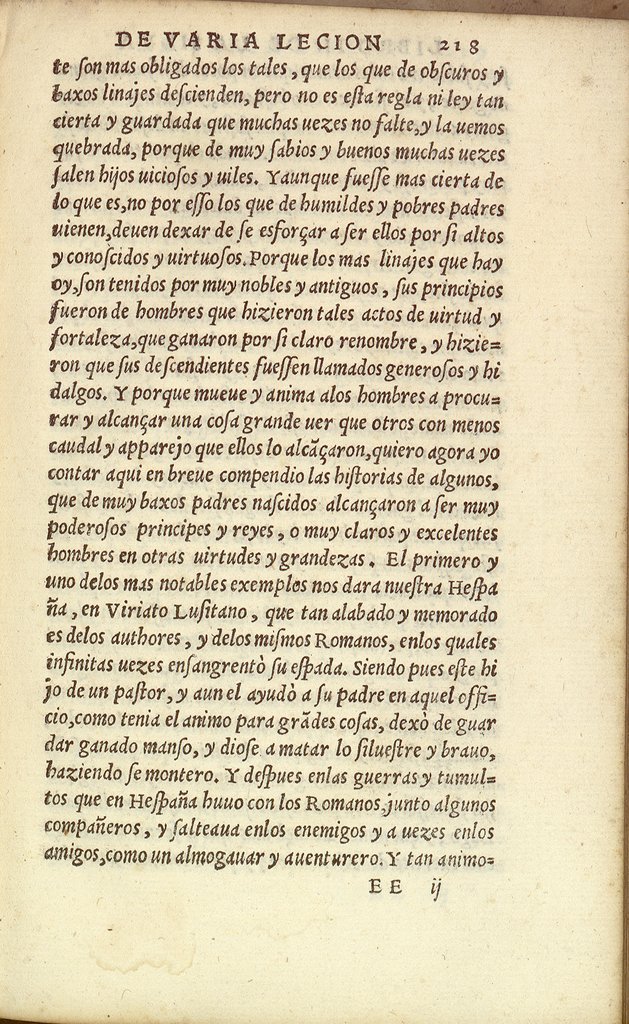 DE VARIA LECION 218
te ſon mas obligados los tales, que los que de obſcuros y
baxos linajes deſcienden, pero no es eſta regla ni ley tan
cierta y guardada que muchas uezes no falte, y la uemos
quebrada, porque de muy ſabios y buenos muchas uezes
ſalen hijos uicioſos y uiles. Y aunque fueſſe mas cierta de
lo que es, no por eſſo los que de humildes y pobres padres
uienen, deuen dexar de ſe esforçar a ſer ellos por ſi altos
y conoſcidos y uirtuoſos. Porque los mas linajes que hay
oy, ſon tenidos por muy nobles y antiguos, ſus principios
fueron de hombres que hizieron tales actos de uirtud y
fortaleza, que ganaron por ſi claro renombre, y hizie=
ron que ſus deſcendientes fueſſen llamados generoſos y hi
dalgos. Y porque mueue y anima alos hombres a procu=
rar y alcançar una coſa grande uer que otros con menos
caudal y apparejo que ellos lo alcãçaron, quiero agora yo
contar aqui en breue compendio las hiſtorias de algunos,
que de muy baxos padres naſcidos alcançaron a ſer muy
poderoſos principes y reyes, o muy claros y excelentes
hombres en otras uirtudes y grandezas. El primero y
uno delos mas notables exemplos nos dara nueſtra Heſpa
ña, en Viriato Luſitano, que tan alabado y memorado
es delos authores, y delos miſmos Romanos, enlos quales
infinitas uezes enſangrentò ſu eſpada. Siendo pues eſte hi
jo de un paſtor, y aun el ayudò a ſu padre en aquel offi=
cio, como tenia el animo para grãdes coſas, dexò de guar
dar ganado manſo, y dioſe a matar lo ſilueſtre y brauo,
haziendo ſe montero. Y deſpues enlas guerras y tumul=
tos que en Heſpaña huuo con los Romanos, junto algunos
compañeros, y ſalteaua enlos enemigos y a uezes enlos
amigos, como un almogauar y auenturero. Y tan animo=
EE ij